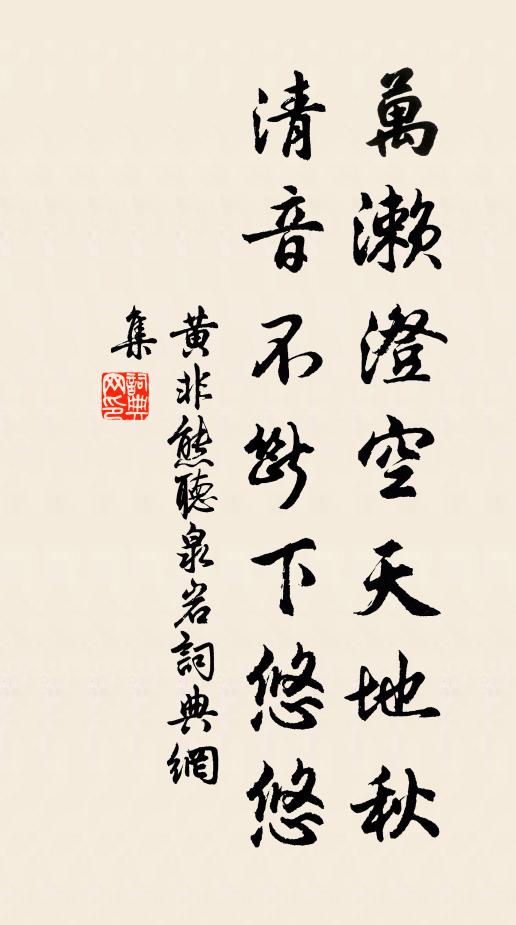 萬濑澄空天地秋
清音不斷下悠悠
黄非熊聽泉岩詞典網
集
詞典
网印